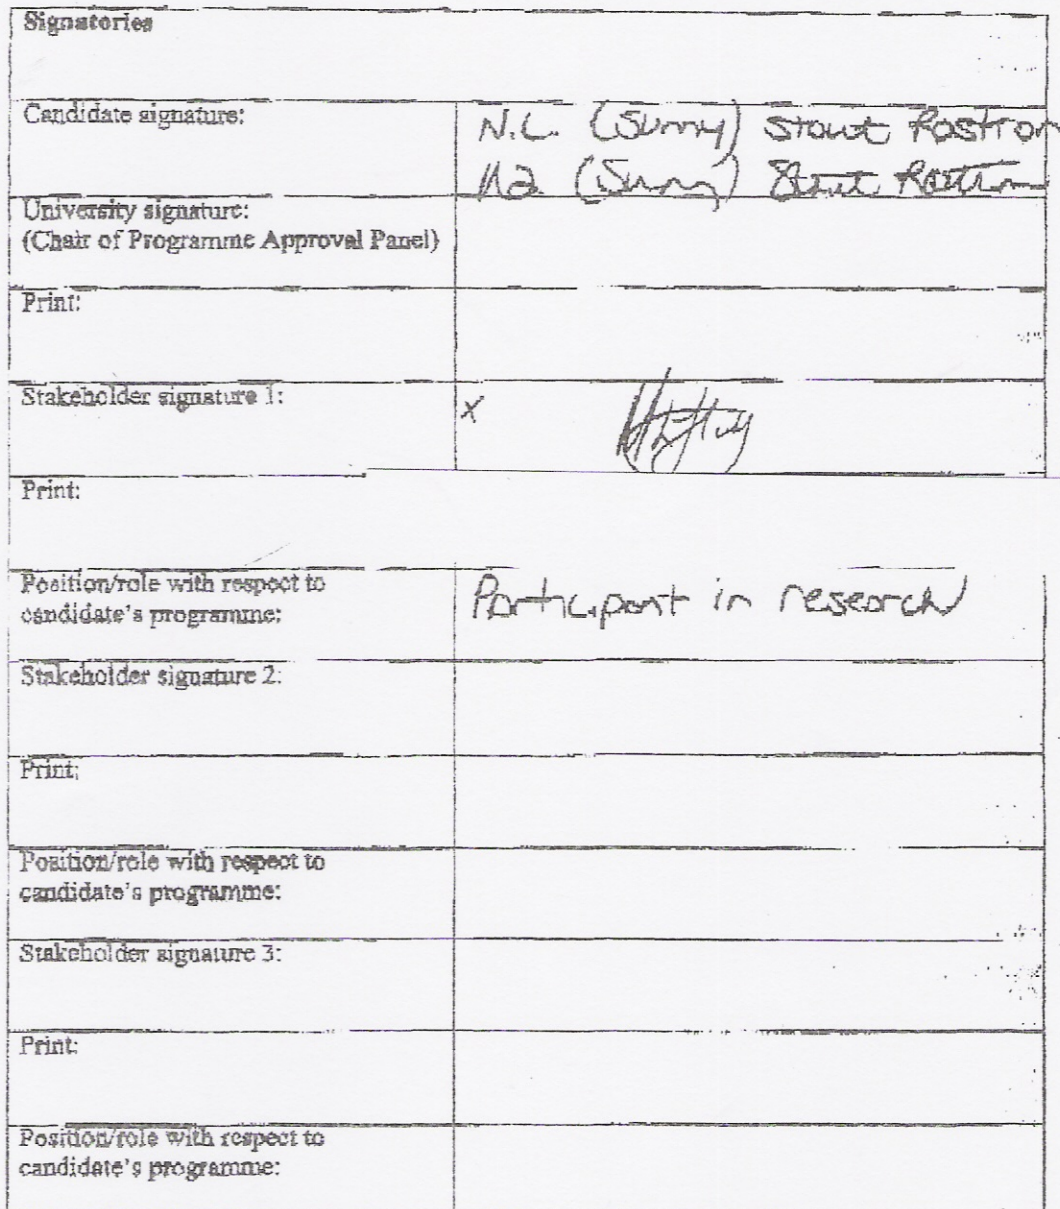 Signatories
Candidate signature:
N.L. (Sunny) Stout Rostron
(Sunny) Stout Rostron
University signature:
(Chair of Programme Approval Panel)
Print:
Stakeholder signature 1:
X
Print:
Position/role with respect to
candidate's programme:
Participant in research
Stakeholder signature 2:
Print:
Position/role with respect to
candidate's programme:
Stakeholder signature 3:
Print:
Position/role with respect to
candidate's programme: